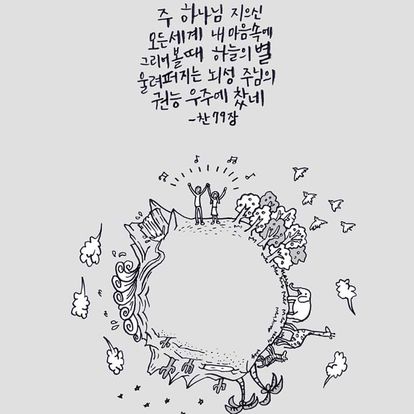 주 하나님 지으신
모든세계 내 마음속에
그리어 볼때 하늘의 별
울려퍼지는 뇌성 주님의
권능 우주에 찼네
-찬79장